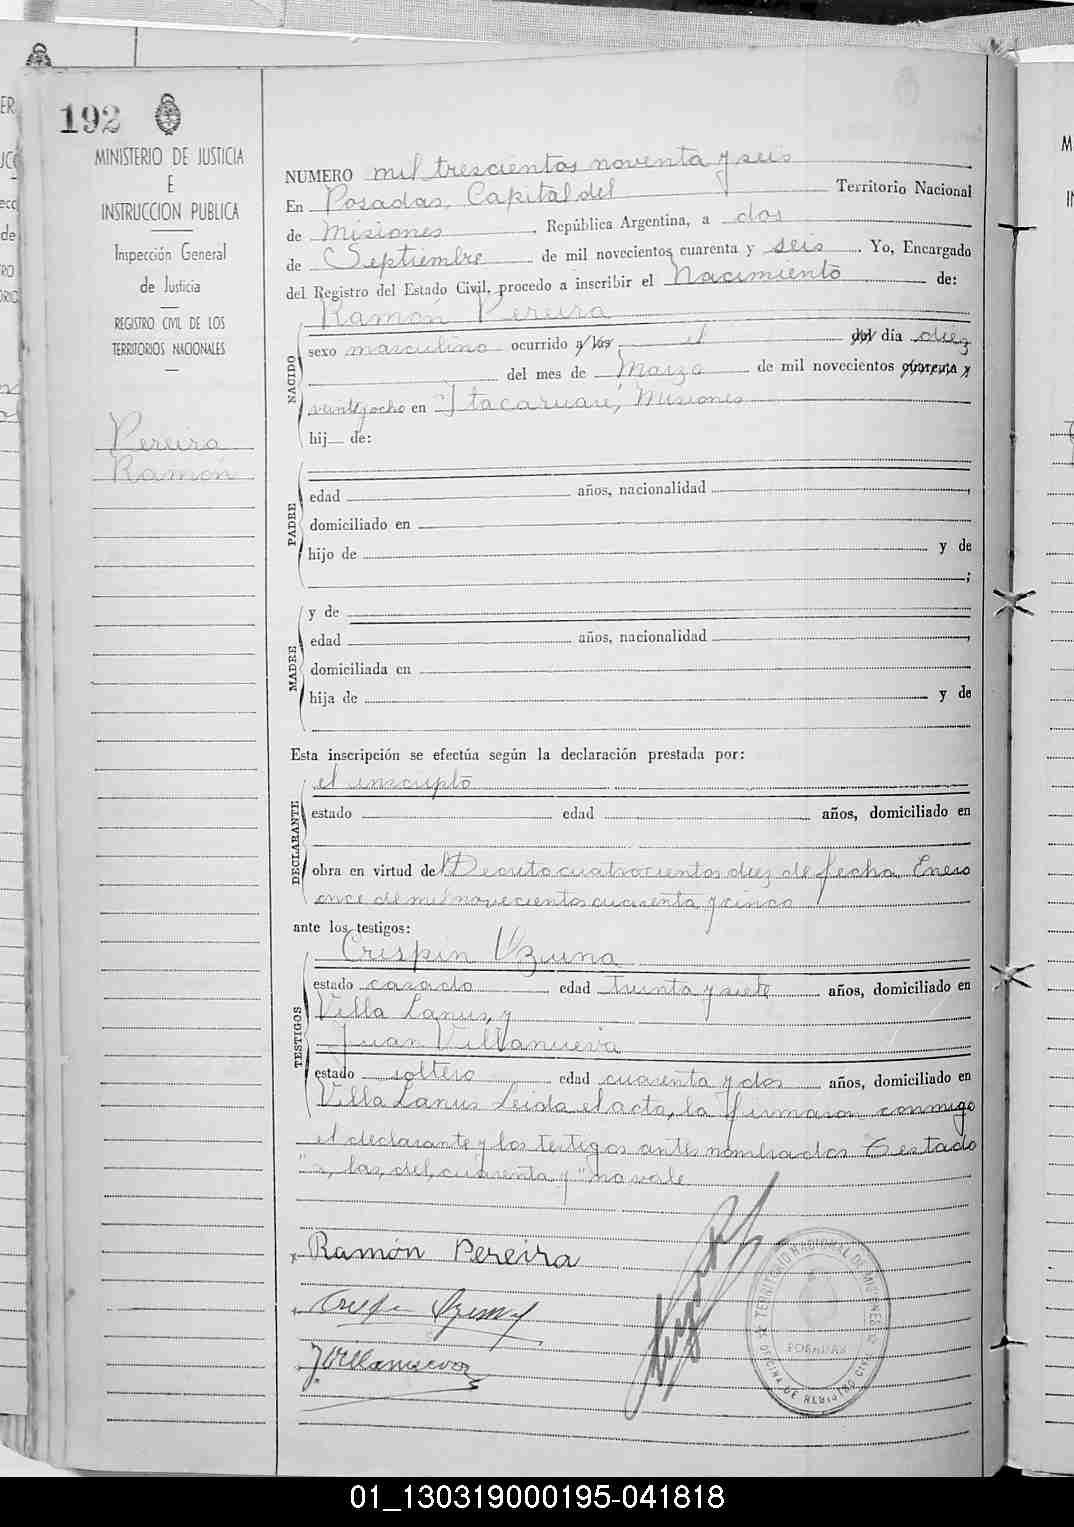 192
MINISTERIO DE JUSTICIA
E
INSTRUCCION PUBLICA
Inspección General
de Justicia
REGISTRO CIVIL DE LOS
TERRITORIOS NACIONALES
Pereira
Ramón
NUMERO mil trescientos noventa y seis
En Posadas, Capital del Territorio Nacional
de Misiones, República Argentina, a dos
de Septiembre de mil novecientos cuarenta y seis. Yo, Encargado
del Registro del Estado Civil, procedo a inscribir el Nacimiento de:
Ramón Pereira
NACIDO
sexo masculino ocurrido a las el del dia diez
del mes de Marzo de mil novecientos cuarenta y
veintiocho en Itacaruaré, Misiones
hij de:
PADRE
edad años, nacionalidad ,
domiciliado en
hijo de y de
;
MADRE
y de
edad años, nacionalidad ,
domiciliada en
hija de y de
Esta inscripción se efectúa según la declaración prestada por:
DECLARANTE
el inscripto
estado edad años, domiciliado en
obra en virtud del Decreto cuatrocientos diez de fecha Enero
once de mil novecientos cuarenta y cinco
ante los testigos:
TESTIGOS
Crispin Ozuna
estado casado edad treinta y siete años, domiciliado en
Villa Lanus, y
Juan Villanueva
estado soltero edad cuarenta y dos años, domiciliado en
Villa Lanus Leida el acta, la firmaron conmigo
el declarante y los testigos antes nombrados Testado
"a, las, del, cuarenta y" no vale
Ramón Pereira
Crispin Ozuna
J Villanueva
TERRITORIO NACIONAL DE MISIONES
POSADAS
OFICINA DE REGISTRO CIVIL
01_130319000195-041818